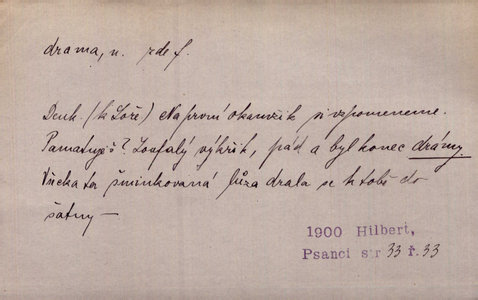 drama, n. zde f.
Denk. (k Loře) Na první okamžik si vzpomeneme.
Pamatuješ? Zoufalý výkřik, pád a byl konec drámy.
Všecka ta šminkovaná lůza drala se k tobě do
šatny —
1900 Hilbert,
Psanci str 33 ř. 33